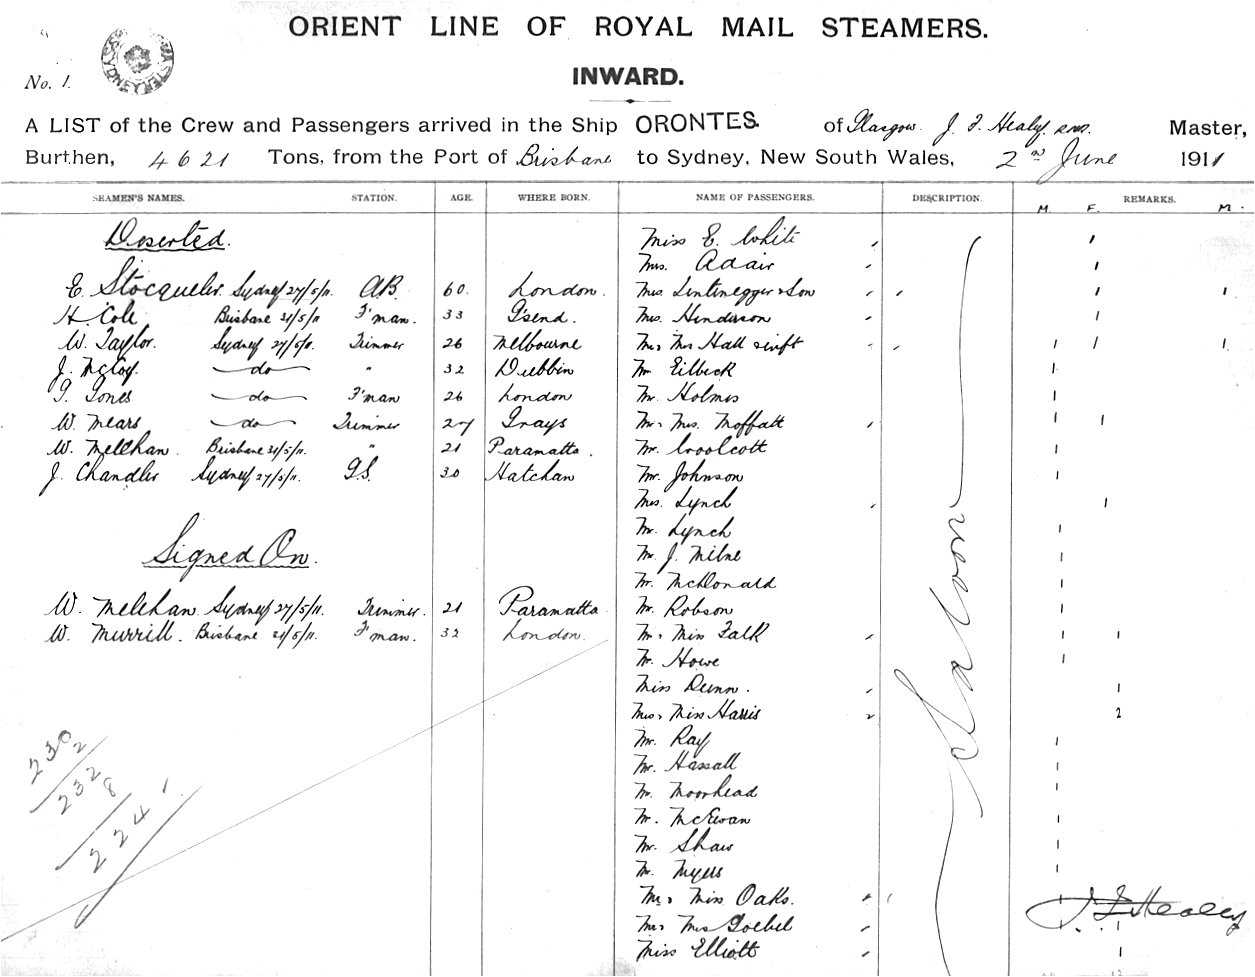 ORIENT LINE OF ROYAL MAIL STEAMERS.
No. 1.
SYDNEY
INWARD.
A LIST of the Crew and Passengers arrived in the Ship ORONTES. of Glasgow. J. F. Healy Master,
Burthen, 4621 Tons, from the Port of Brisbane to Sydney, New South Wales, 2nd June 1911
SEAMEN'S NAMES. STATION. AGE. WHERE BORN. NAME OF PASSENGERS. DESCRIPTION. REMARKS.
M. F. M.
Deserted. Miss E. White , 1
Mrs. Adair , 1
E. Stocqueler. Sydney 27/5/11. AB. 60. London. Mrs. Lintinegger & Son , , 1 1
H. Cole Brisbane 31/5/11 F'man. 33 G'send. Mrs. Henderson , 1
W. Taylor. Sydney 27/5/11. Trimmer 26 Melbourne Mr. Mrs Hall & Inft , , 1 1 1
J. McCoy. do " 32 Dubbin Mr Eilbeck 1
T. Jones do F'man 26 London Mr. Holmes 1
W. Mears do Trimmer 27 Grays Mr. Mrs. Moffatt , 1 1
W. Melehan. Brisbane 31/5/11. " 21 Paramatta. Mr. Woolcott 1
J. Chandler Sydney 27/5/11. G.S. 30 Hatchan Mr. Johnson 1
Mrs. Lynch , 1
Mr. Lynch 1
Signed On. Mr. J. Milne 1
Mr. McDonald 1
W. Melehan Sydney 27/5/11. Trimmer. 21 Paramatta Mr. Robson 1
W. Murrill. Brisbane 31/5/11. F'man. 32 London. Mr. Miss Falk , 1 1
Mr. Howe 1
Miss Dunn. , 1
Mrs. Miss Harris 2 2
Mr. Ray 1
Mr. Hassall 1
Mr. Moorhead 1
Mr. McEwan 1
Mr. Shaw 1
Mr. Myers 1
Mr. Miss Oaks.
Mr. Mrs Goebel ,
Miss Elliott , 1
Saloon
230
2
232
8
224
J. F. Healy